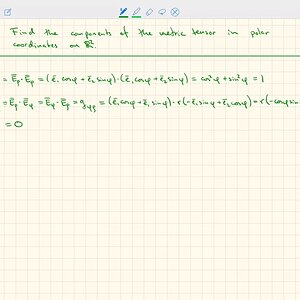 Find the components of the metric tensor in polar
coordinates on ℝ².
= ē_ρ · ē_ρ = (ē₁ cosφ + ē₂ sinφ) · (ē₁ cosφ + ē₂ sinφ) = cos²φ + sin²φ = 1
= ē_ρ · ē_φ = ē_φ · ē_ρ = g_φρ = (ē₁ cosφ + ē₂ sinφ) · r(-ē₁ sinφ + ē₂ cosφ) = r(-cosφ sin
= 0